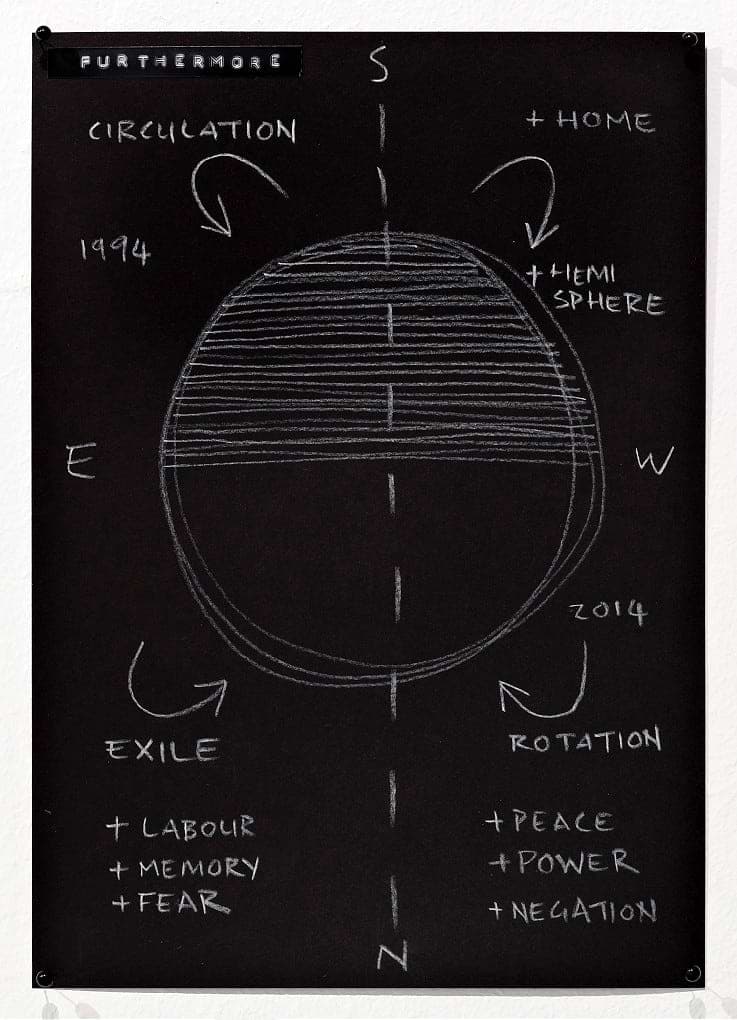 FURTHERMORE
S
CIRCULATION
+ HOME
1994
+ HEMI
SPHERE
E
W
2014
EXILE
ROTATION
+ LABOUR
+ MEMORY
+ FEAR
+ PEACE
+ POWER
+ NEGATION
N